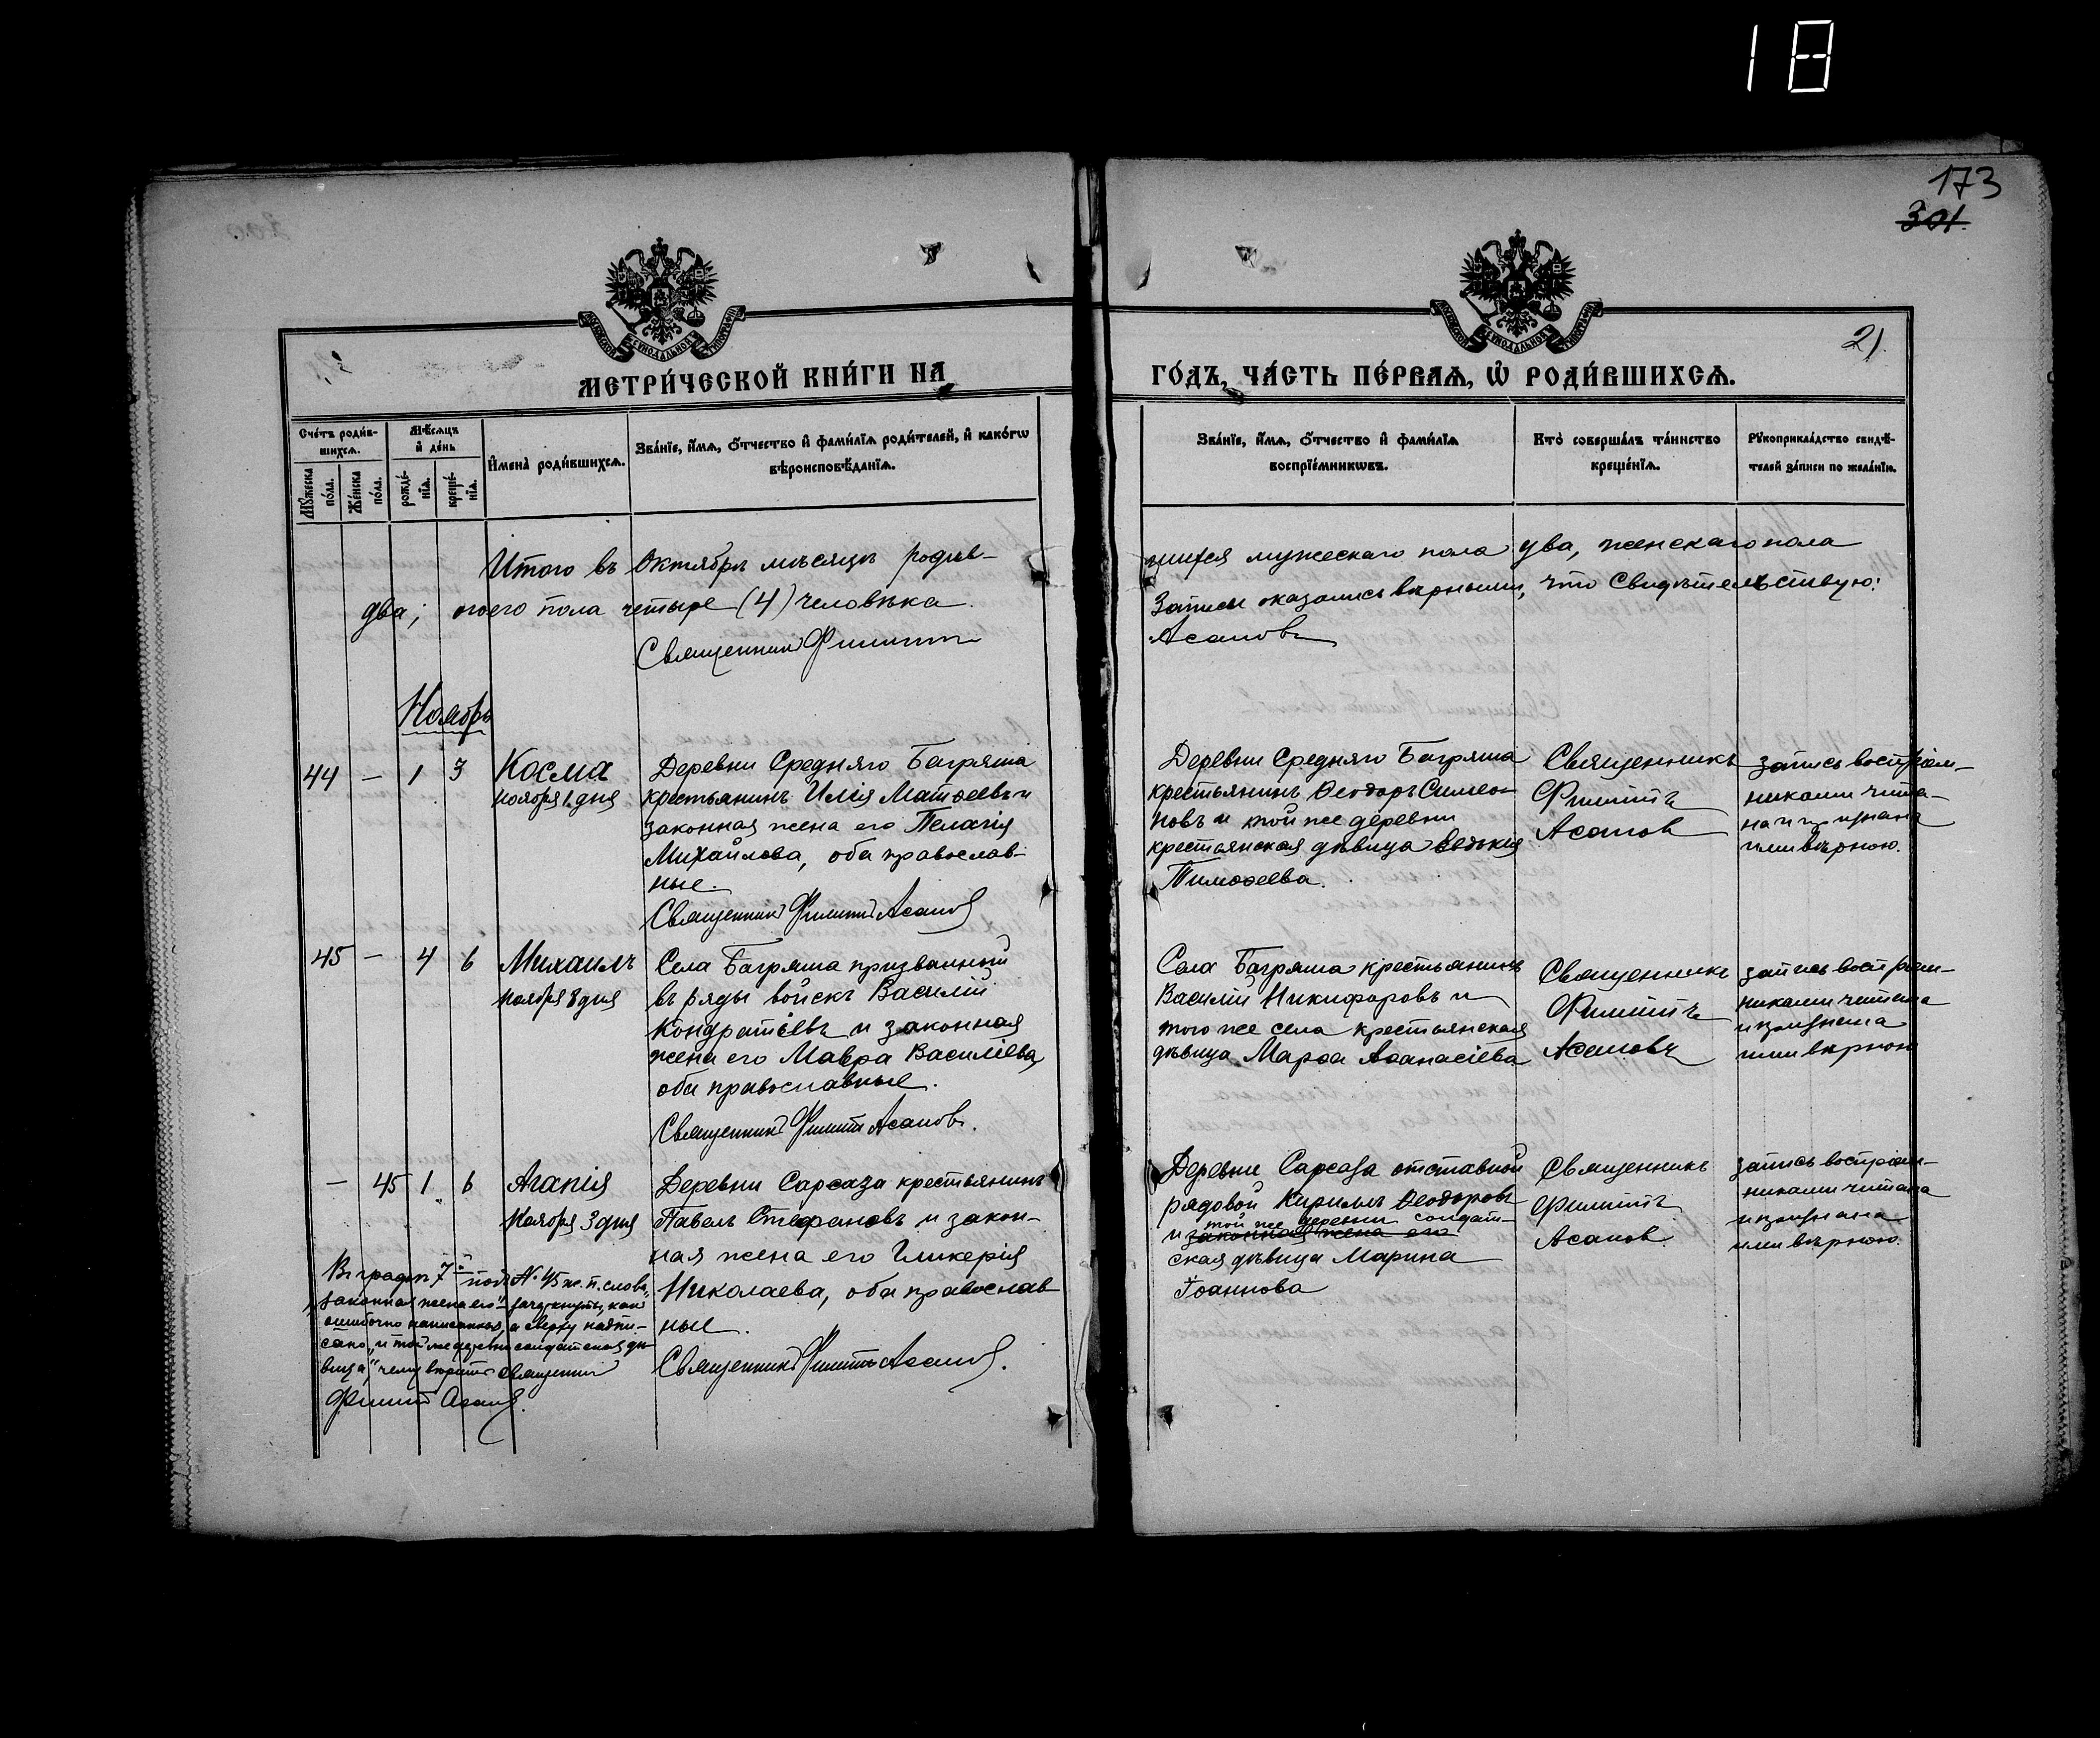 18
173
301.
21.
МЕТРИ́ЧЕСКОЙ КНИ́ГИ НА
ГО́ДЪ, ЧА́СТЬ ПЕ́РВАѦ, Ѽ РОДИ́ВШИХСѦ.
Сче́тъ роди́в-
шихсѧ.
Мꙋ́жеска по́ла.
Же́нска по́ла.
Мѣ́сѧцъ и҆ де́нь
рожде́-нїѧ.
креще́-нїѧ.
И҆мена̀ роди́вшихсѧ.
Зва́нїе, и҆́мѧ, ѻ҆́тчество и҆ фамилїѧ роди́телей, и҆ како́гѡ
вѣроисповѣ́данїѧ.
Зва́нїе, и҆́мѧ, ѻ҆́тчество и҆ фами́лїѧ
воспрїе́мникѡвъ.
Кто̀ соверша́лъ та́инство
креще́нїѧ.
Рꙋкоприкла́дство свидѣ́-
телей за́писи по жела́нїю.
Итого въ Октябрѣ мѣсяцѣ родив-
шихся мужескаго пола два, женскаго пола
два; обоего пола четыре (4) человѣка.
Записи оказались вѣрными, что свидѣтельствую:
Священникъ Филиппъ
Асановъ
Ноябрь
44 — 1 3
Косма
ноября 1 дня
Деревни Средняго Багряша
крестьянинъ Илія Матѳеевъ и
законная жена его Пелагія
Михайлова, оба православ-
ные.
Священникъ Филиппъ Асановъ
Деревни Средняго Багряша
крестьянинъ Ѳеодоръ Симео-
новъ и той же деревни
крестьянская дѣвица Евдокія
Тимоѳеева.
Священникъ
Филиппъ
Асановъ
запись воспріем-
никами чита-
на и признана
ими вѣрною.
45 — 4 6
Михаилъ
ноября 8 дня
Села Багряша призванный
въ ряды войскъ Василій
Кондратіевъ и законная
жена его Мавра Василіева,
оба православные.
Священникъ Филиппъ Асановъ.
Села Багряша крестьянинъ
Василій Никифоровъ и
того же села крестьянская
дѣвица Марѳа Аѳанасіева
Священникъ
Филиппъ
Асановъ
запись воспріем-
никами читана
и признана
ими вѣрною
— 45 1 6
Агапія
Ноября 3 дня
Деревни Сарсаза крестьянинъ
Павелъ Стефановъ и закон-
ная жена его Гликерія
Николаева, оба православ
ные.
Священникъ Филиппъ Асановъ.
Деревни Сарсаза отставной
рядовой Кириллъ Ѳеодоровъ
той же деревни солдат-
и законная жена его
ская дѣвица Марина
Іоаннова
Священникъ
Филиппъ
Асановъ
запись воспріем-
никами читана
и признана
ими вѣрною.
Въ графѣ 7й подъ № 45 ж. п. слова
„законная жена его" зачеркнуты, какъ
ошибочно написанныя, а сверху надпи-
сано „и той же деревни солдатская дѣ-
вица", чему вѣритъ Священникъ
Филиппъ Асановъ.